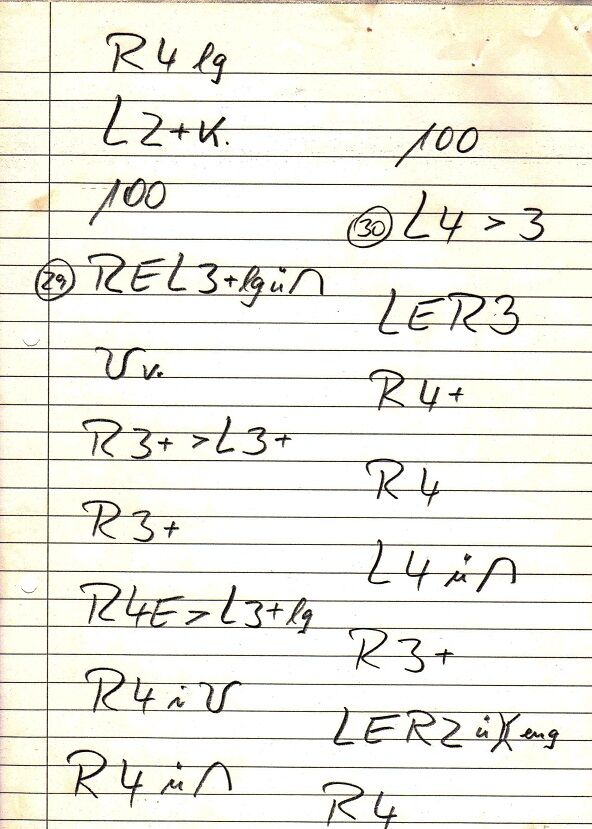 R4 lg
L2+K.
100
29 REL3+lgü∩
V v.
R3+ >L3+
R3+
R4E>L3+lg
R4 i V
R4 ü∩
100
30 L4 > 3
LER3
R4+
R4
L4 ü∩
R3+
LER2 ü)( eng
R4